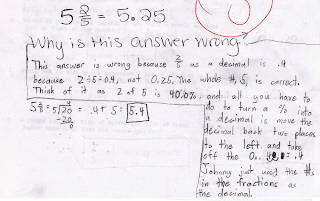 5 2/5 = 5.25
Why is this answer wrong
This answer is wrong because 2/5 as a decimal is .4
because 2÷5=0.4, not 0.25. The whole #, 5, is correct.
Think of it as 2 of 5 is 40.0%. and all you have
5 2/5 = 5√20 = .4 + 5 = 5.4
4
-20
0
to do to turn a % into
a decimal is move the
decimal back two places
to the left and take
off the 0.. 40.0= .4
Johnny just used the #s
in the fractions as
the decimal.